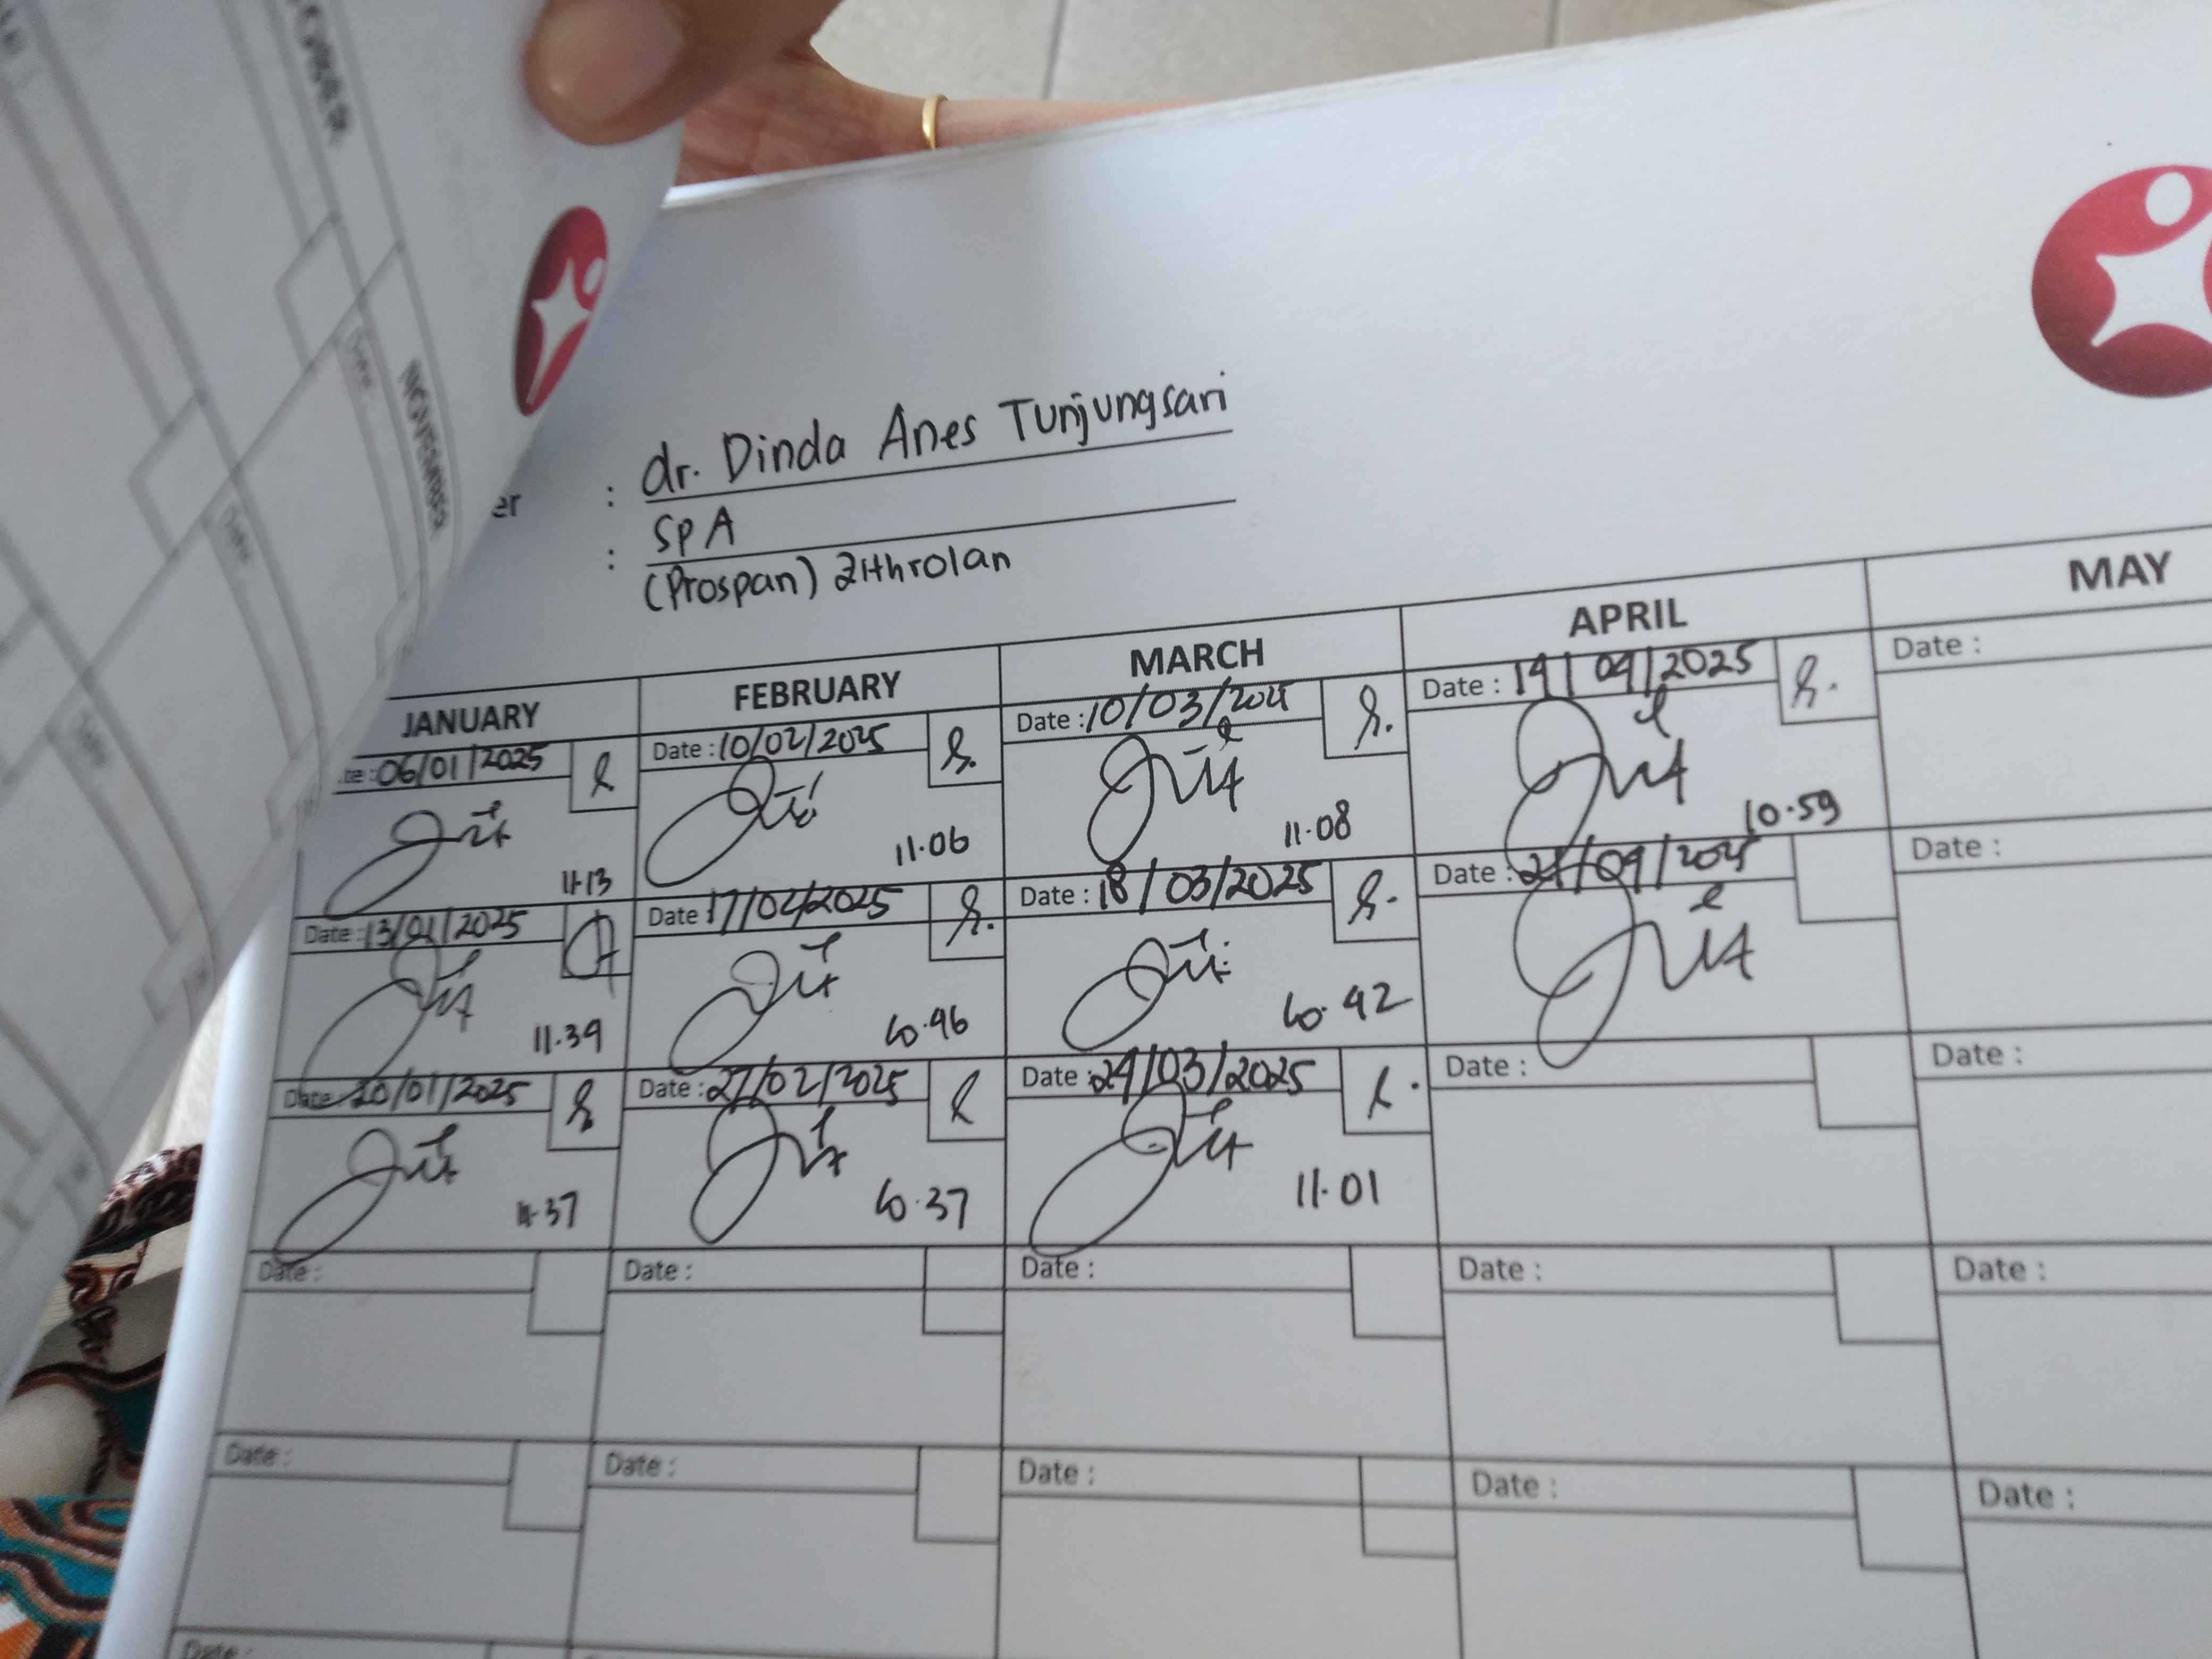 OBER
NOVEMBER
Date
Date
er : dr. Dinda Anes Tunjungsari
: SpA
(Prospan) Zithrolan
JANUARY FEBRUARY MARCH APRIL MAY
te : 06/01/2025 Date : 10/02/2025 Date : 10/03/2025 Date : 14/04/2025 Date :
11.13 11.06 11.08 10.59
Date : 13/01/2025 Date : 17/02/2025 Date : 18/03/2025 Date : 21/04/2025 Date :
11.39 10.46 10.42
Date : 20/01/2025 Date : 27/02/2025 Date : 24/03/2025 Date : Date :
11.37 10.37 11.01
Date : Date : Date : Date : Date :
Date : Date : Date : Date : Date :
Date :